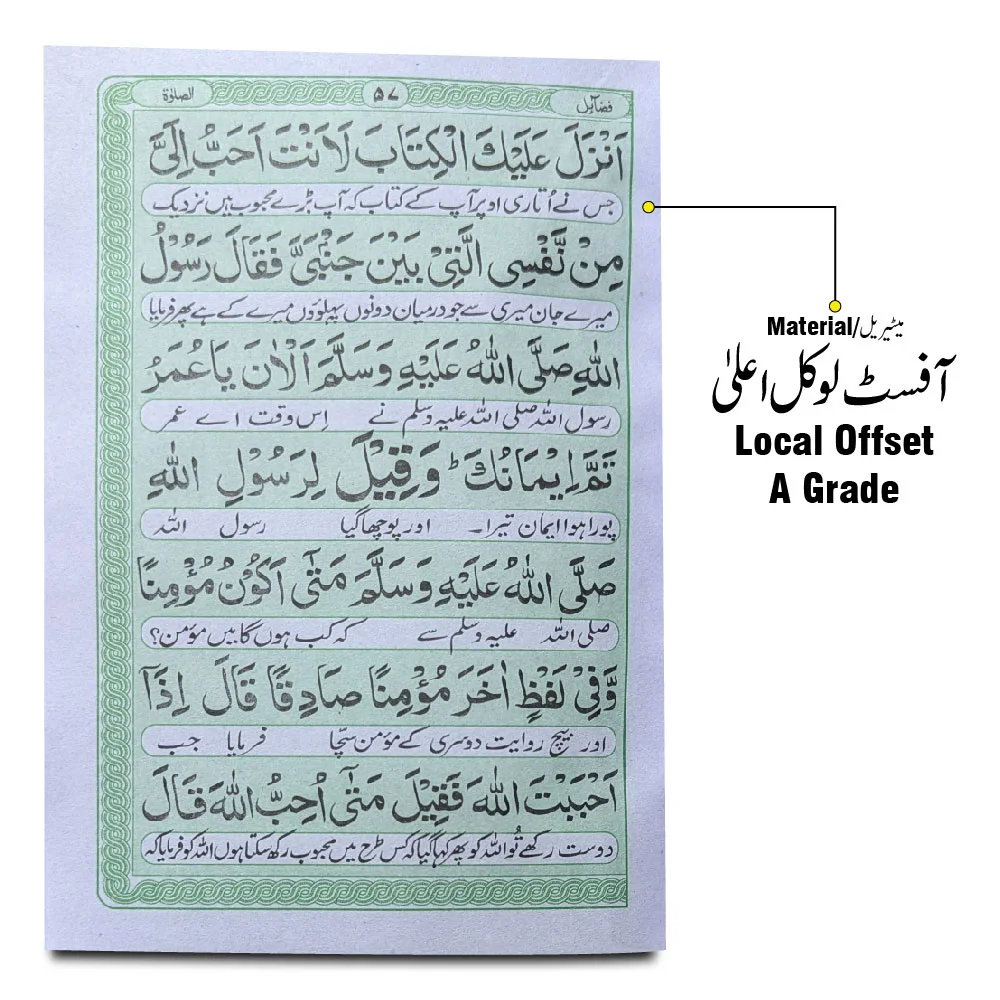 فضآئل ۵۷ الصلوٰة
اَنْزَلَ عَلَيْكَ الْكِتَابَ لَاَنْتَ اَحَبُّ اِلَیَّ
جس نے اُتاری اوپر آپ کے کتاب کہ آپ بڑے محبوب ہیں نزدیک
مِنْ نَّفْسِی الَّتِیْ بَيْنَ جَنْبَیَّ فَقَالَ رَسُوْلُ
میرے جان میری سے جو درمیان دونوں پہلوؤں میرے کے ہے پھر فرمایا
اللّٰهِ صَلَّی اللّٰهُ عَلَيْهِ وَسَلَّمَ اَلْاٰنَ يَا عُمَرُ
رسول اللہ صلی اللہ علیہ وسلم نے اِس وقت اے عمر
تَمَّ اِيْمَانُكَ ؕ وَقِيْلَ لِرَسُوْلِ اللّٰهِ
پورا ہوا ایمان تیرا۔ اور پوچھا گیا رسول اللہ
صَلَّی اللّٰهُ عَلَيْهِ وَسَلَّمَ مَتٰٓی اَكُوْنُ مُؤْمِنًا
صلی اللہ علیہ وسلم سے کہ کب ہوں گا میں مؤمن؟
وَّفِیْ لَفْظٍ اٰخَرَ مُؤْمِنًا صَادِقًا قَالَ اِذَآ
اور بیچ روایت دوسری کے مؤمن سچّا فرمایا جب
اَحْبَبْتَ اللّٰهَ فَقِيْلَ مَتٰٓی اُحِبُّ اللّٰهَ قَالَ
دوست رکھے تُو اللہ کو پھر کہا گیا کہ کس طرح میں محبوب رکھ سکتا ہوں اللہ کو فرمایا کہ
Material/میٹیریل
آفسٹ لوکل اعلیٰ
Local Offset
A Grade